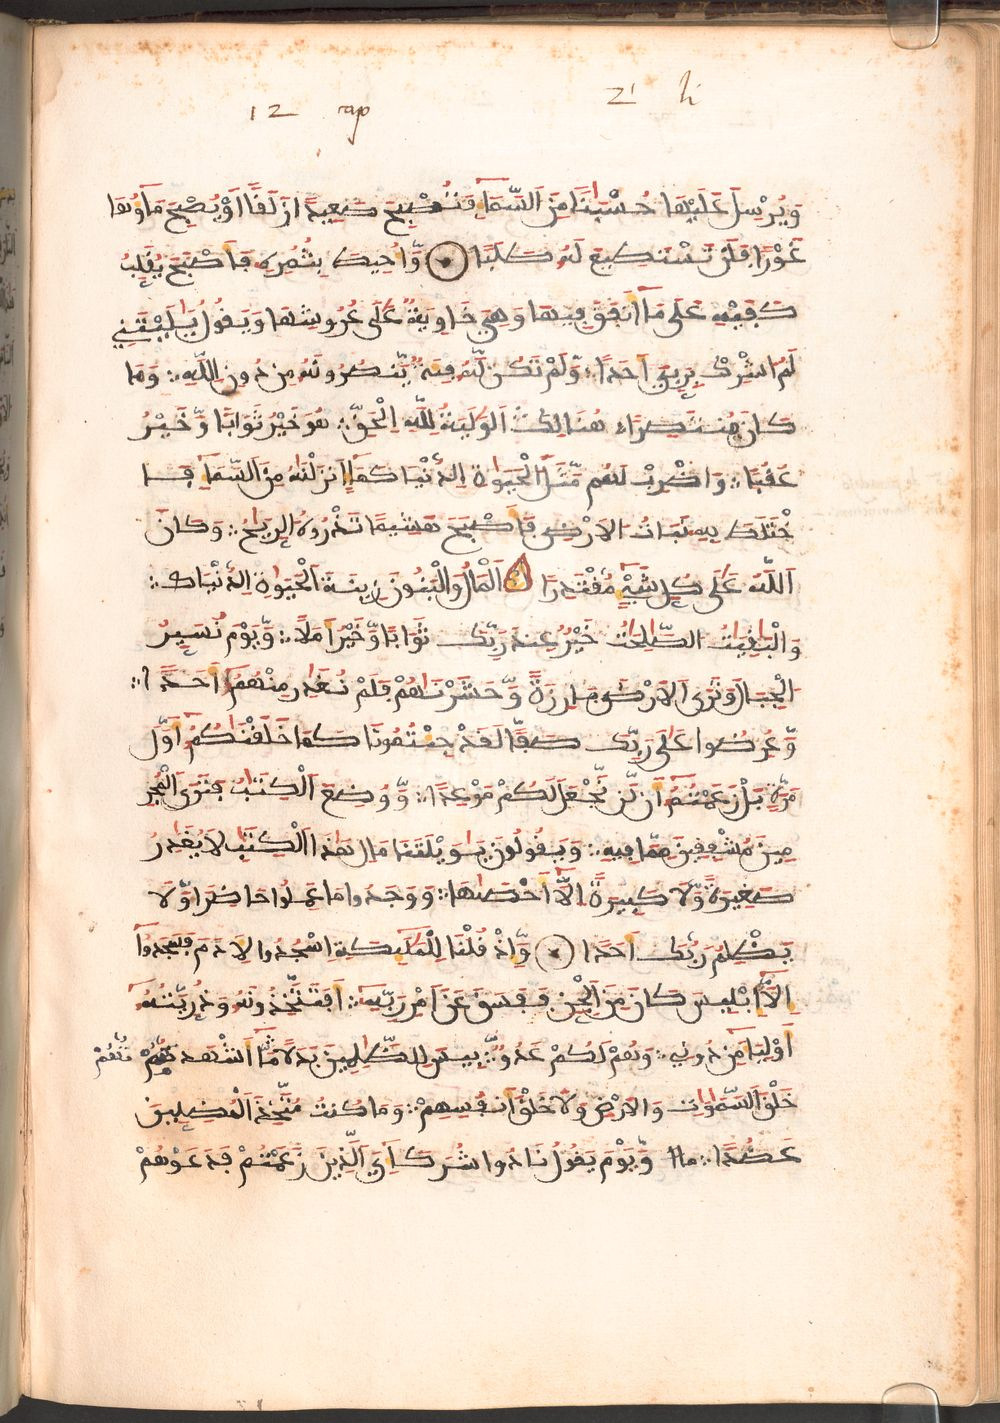 12 cap 21 li
وَيُرْسِلَ عَلَيْهَا حُسْبَٰنًا مِّنَ اَلسَّمَآءِ فَتُصْبِحَ صَعِيدًا زَلَقًا اَوْ يُصْبِحَ مَآؤُهَا
غَوْرًا فَلَن تَسْتَطِيعَ لَهُۥ طَلَبًا وَأُحِيطَ بِثُمُرِهِ فَأَصْبَحَ يُقَلِّبُ
كَفَّيْهِ عَلَىٰ مَآ أَنفَقَ فِيهَا وَهِيَ خَاوِيَةٌ عَلَىٰ عُرُوشِهَا وَيَقُولُ يَٰلَيْتَنِي
لَمُ اشْرِكْ بِرَبِّيَ أَحَدًا ؞ وَلَمْ تَكُن لَّهُۥ فِئَةٌ يَّنصُرُونَهُۥ مِن دُونِ اِللَّهِ ؞ وَمَا
كَانَ مُنتَصِرًا ؞ هُنَالِكَ اَلْوَلَٰيَةُ لِلَّهِ اِلْحَقِّ ؞ هُوَ خَيْرٌ ثَوَابًا وَّخَيْرٌ
عُقُبًا ؞ وَاضْرِبْ لَهُم مَّثَلَ اَلْحَيَوٰةِ اِلدُّنْيَا كَمَآءٍ اَنزَلْنَٰهُ مِنَ اَلسَّمَآءِ فَا
خْتَلَطَ بِهِۦ نَبَاتُ اُلَارْضِ فَأَصْبَحَ هَشِيمًا تَذْرُوهُ اُلرِّيَٰحُ ؞ وَكَانَ
اَللَّهُ عَلَىٰ كُلِّ شَيْءٍ مُّقْتَدِرًا اَلْمَالُ وَالْبَنُونَ زِينَةُ اُلْحَيَوٰةِ اِلدُّنْيَا ؞
وَالْبَٰقِيَٰتُ اُلصَّٰلِحَٰتُ خَيْرٌ عِندَ رَبِّكَ ثَوَابًا وَّخَيْرٌ اَمَلًا ؞ وَيَوْمَ نُسَيِّرُ
اُلْجِبَالَ وَتَرَى اَلَارْضَ بَارِزَةً وَّحَشَرْنَٰهُمْ فَلَمْ نُغَادِرْ مِنْهُمُۥ أَحَدًا ؞
وَّعُرِضُوا عَلَىٰ رَبِّكَ صَفًّا لَقَدْ جِئْتُمُونَا كَمَا خَلَقْنَٰكُمُۥ أَوَّلَ
مَرَّةٍ بَلْ زَعَمْتُمُۥ أَن لَّن نَّجْعَلَ لَكُمْ مَوْعِدًا ؞ وَّوُضِعَ اَلْكِتَٰبُ فَتَرَى اَلْمُجْرِ
مِينَ مُشْفِقِينَ مِمَّا فِيهِ ؞ وَيَقُولُونَ يَٰوَيْلَتَنَا مَالِ هَٰذَا اَلْكِتَٰبِ لَا يُغَادِرُ
صَغِيرَةً وَّلَا كَبِيرَةً اِلَّآ أَحْصَٰهَا ؞ وَوَجَدُوا مَا عَمِلُوا حَاضِرًا وَّلَا
يَظْلِمُ رَبُّكَ أَحَدًا وَّإِذْ قُلْنَا لِلْمَلَٰٓئِكَةِ اِسْجُدُوا لِأَدَمَ فَسَجَدُوٓا
إِلَّآ إِبْلِيسَ كَانَ مِنَ اَلْجِنِّ فَفَسَقَ عَنَ اَمْرِ رَبِّهِۦ ؞ أَفَتَتَّخِذُونَهُۥ وَذُرِّيَّتَهُۥٓ
أَوْلِيَآءَ مِن دُونِي ؞ وَهُمْ لَكُمْ عَدُوٌّ ؞ بِيسَ لِلظَّٰلِمِينَ بَدَلًا مَّآ أَشْهَد تُّهُمْ تُّهُمْ
خَلْقَ اَلسَّمَٰوَٰتِ وَالَارْضِ وَلَا خَلْقَ أَنفُسِهِمْ ؞ وَمَا كُنتُ مُتَّخِذَ اَلْمُضِلِّينَ
عَضُدًا ؞ وَّيَوْمَ يَقُولُ نَادُوا شُرَكَآءِيَ اَلَّذِينَ زَعَمْتُمْ فَدَعَوْهُمْ